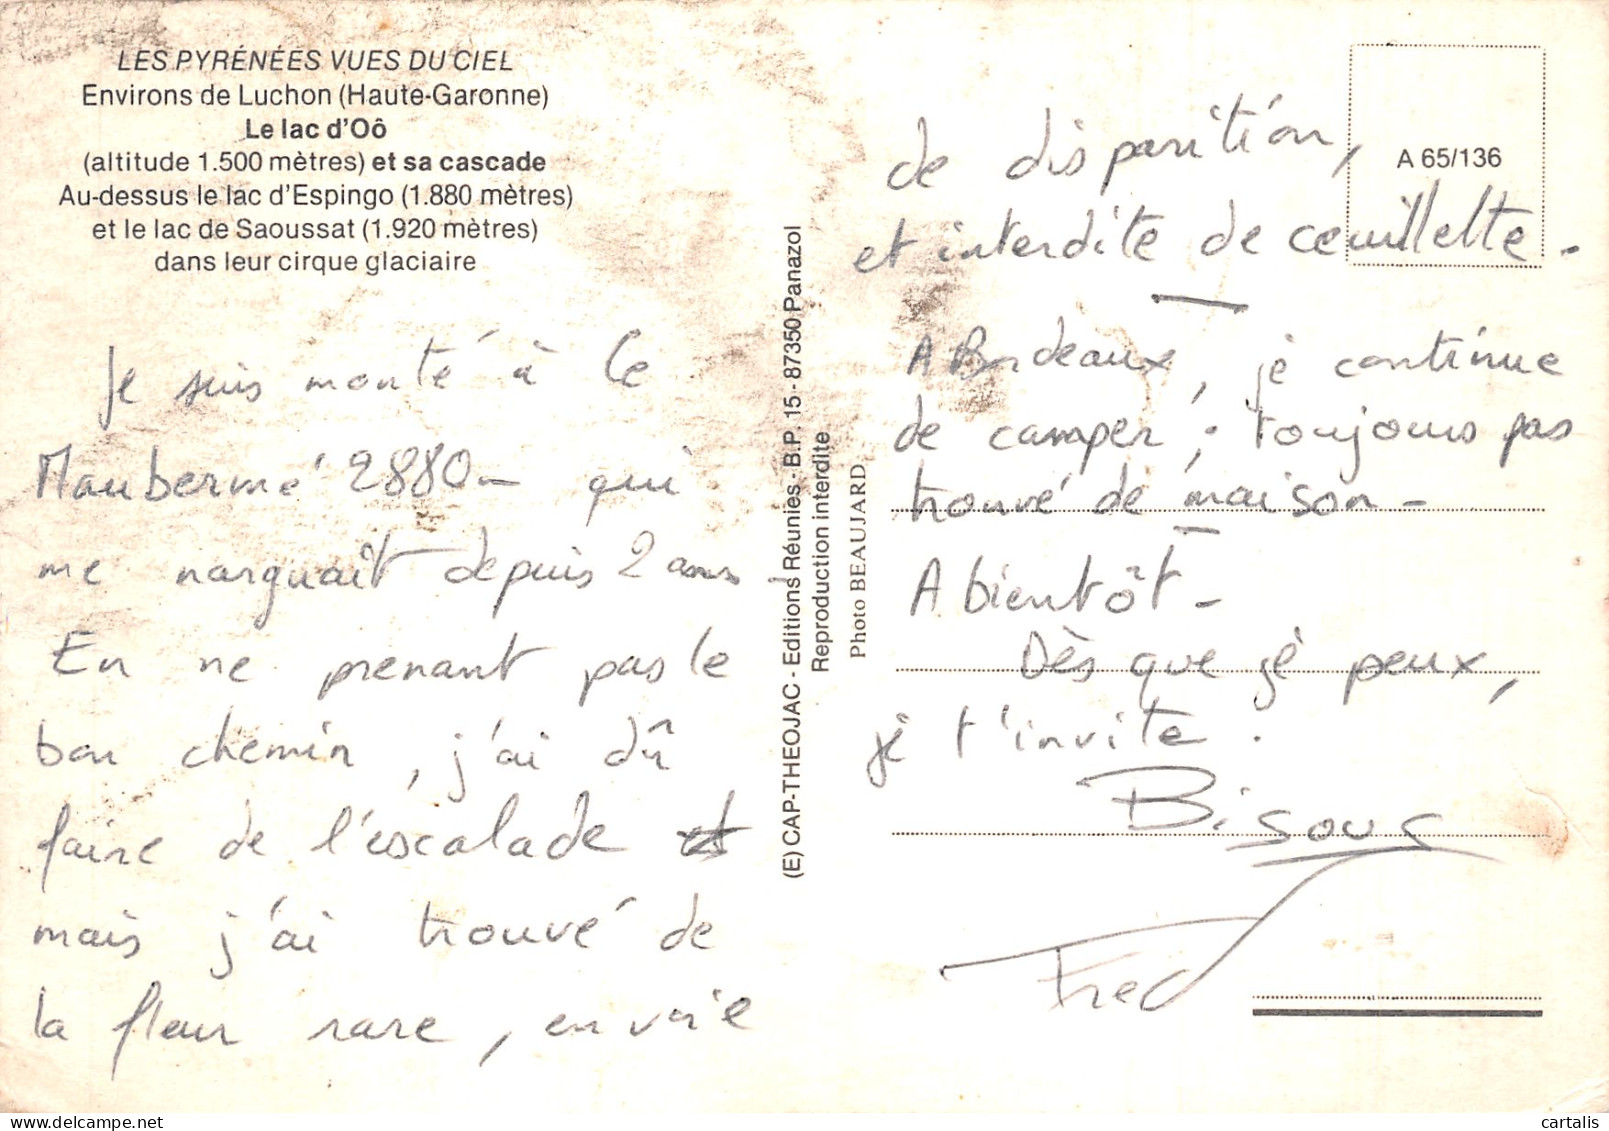 LES PYRÉNÉES VUES DU CIEL
Environs de Luchon (Haute-Garonne)
Le lac d'Oô
(altitude 1.500 mètres) et sa cascade
Au-dessus le lac d'Espingo (1.880 mètres)
et le lac de Saoussat (1.920 mètres)
dans leur cirque glaciaire
Je suis monté à le
Maubermé 2880 - qui
me narguait depuis 2 ans
En ne prenant pas le
bon chemin, j'ai dû
faire de l'escalade
mais j'ai trouvé de
la fleur rare, en voie
(E) CAP-THEOJAC - Editions Réunies - B.P. 15 - 87350 Panazol
Reproduction interdite
Photo BEAUJARD
A 65/136
de disparition,
et interdite de ceuillette.
A Bordeaux, je continue
de camper ; toujours pas
trouvé de maison -
A bientôt -
Dès que je peux,
je t'invite.
Bisous
Fred
cartalis